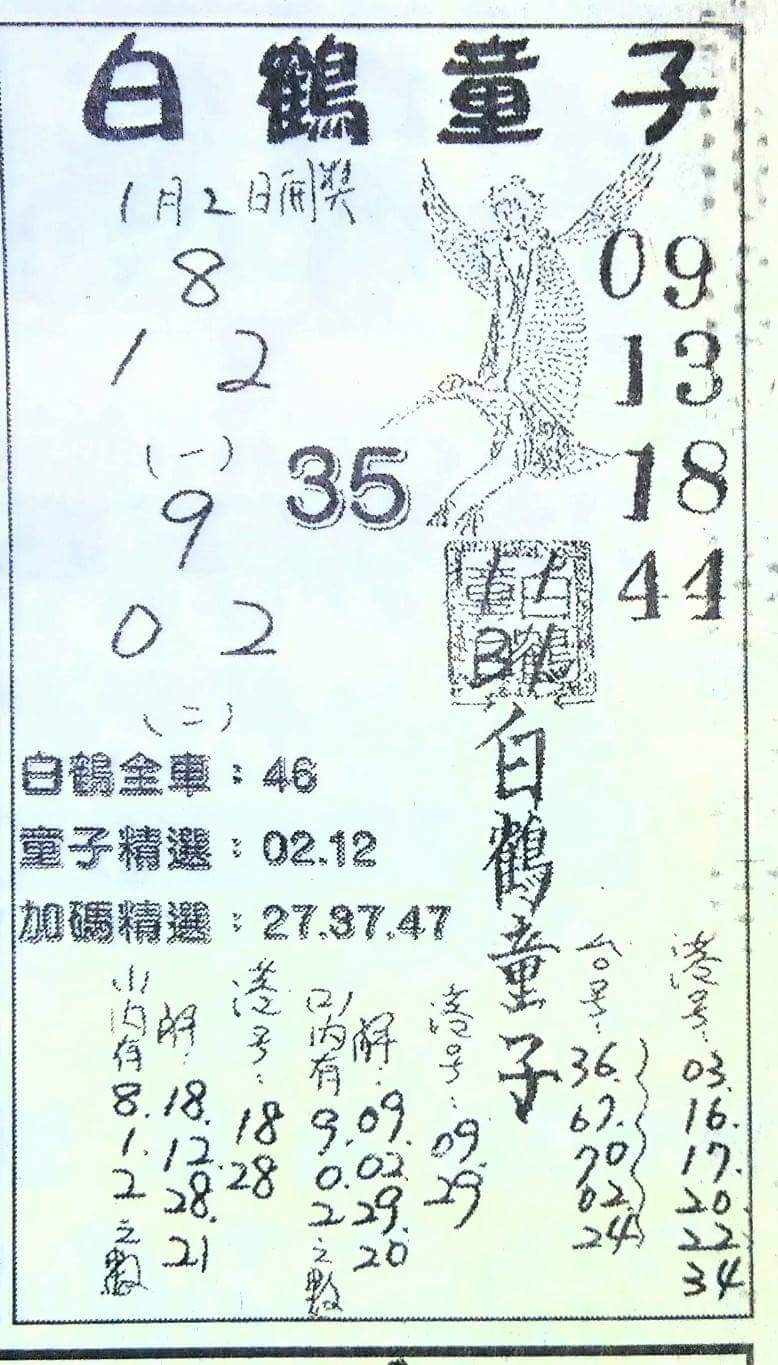 白鶴童子
1月2日開獎
8
1 2
(一)
9
0 2
(二)
35
09
13
18
44
白鶴童子
白鶴全車：46
童子精選：02.12
加碼精選：27.37.47
(1)內有8.1.2之數
解：18.12.28.21
港号：18 28
(2)內有9.0.2之數
解：09.02.29.20
港号：09 29
台号：36.67.70.02.24
港号：03.16.17.20.22.34